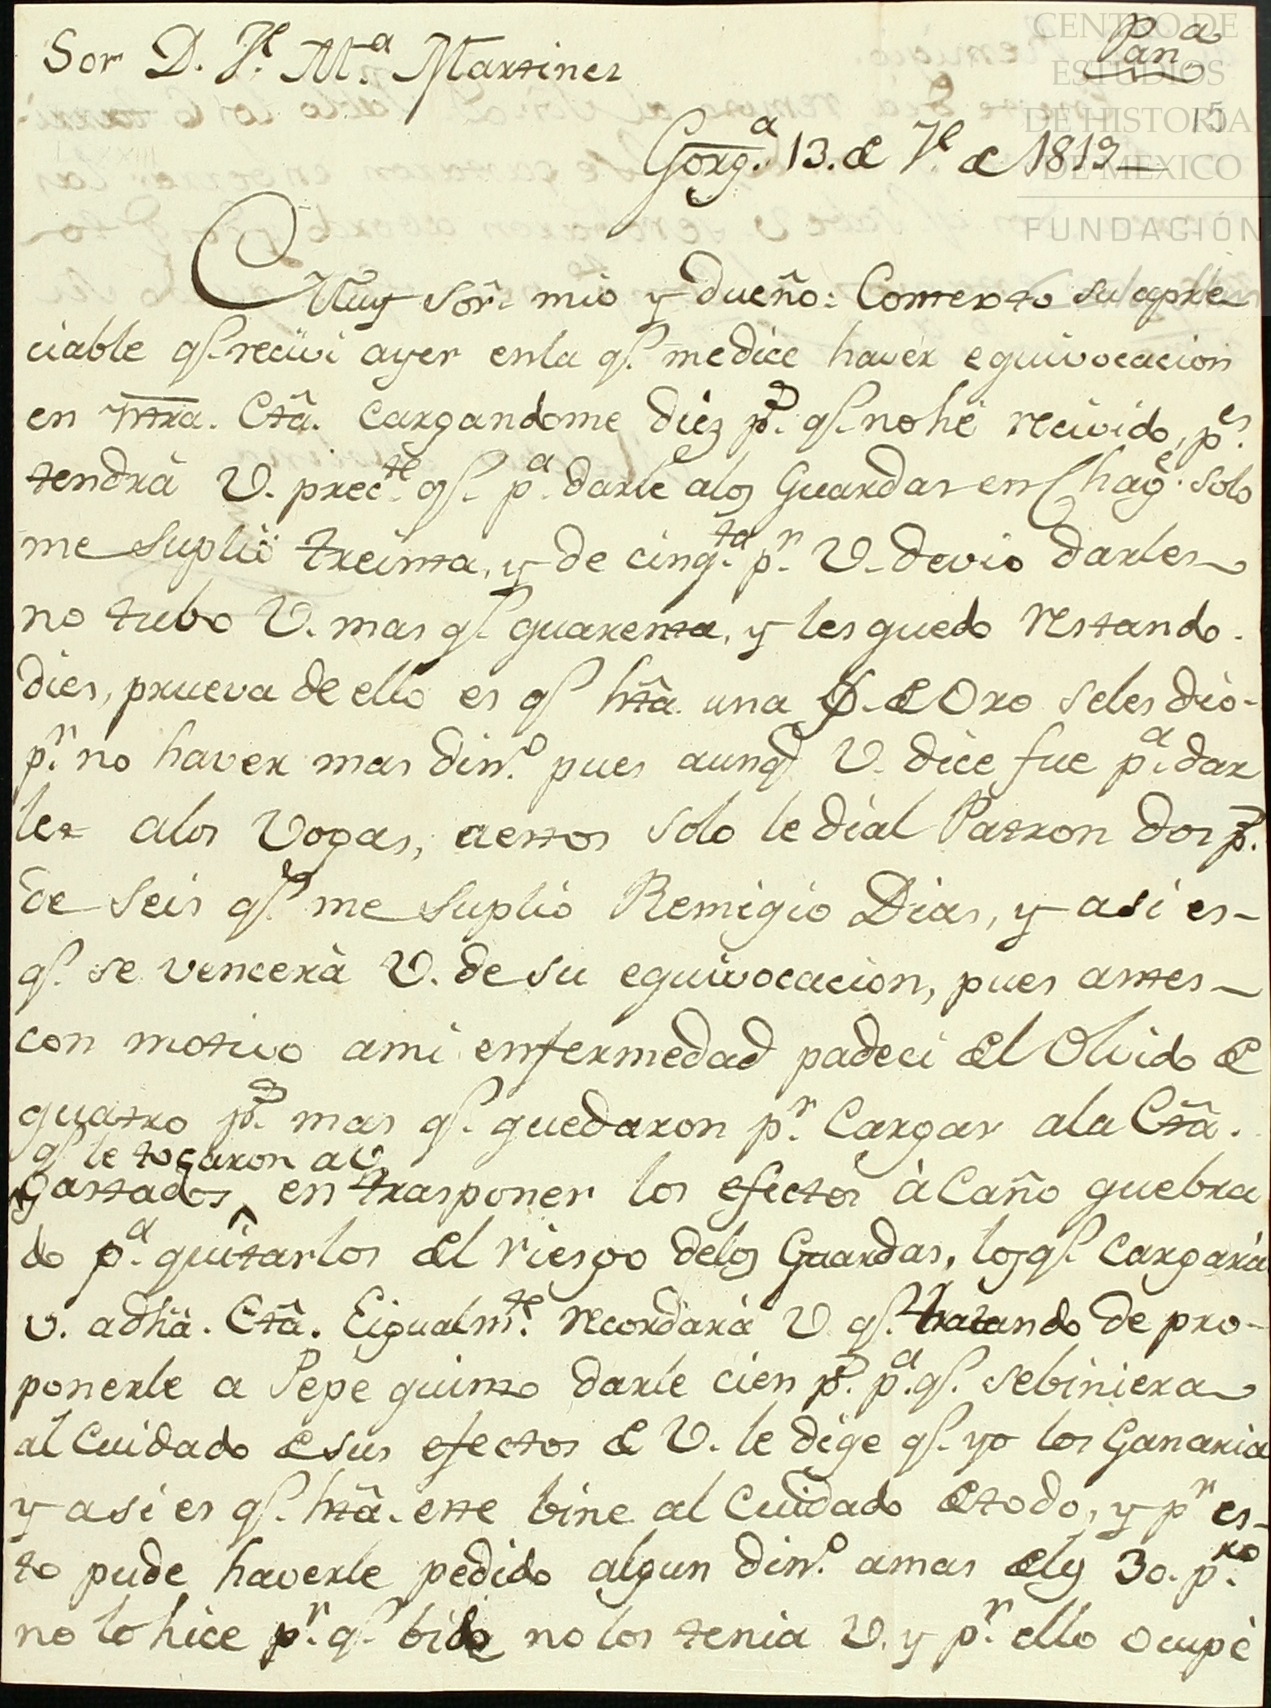 CENTRO DE
ESTUDIOS
DE HISTORIA
DE MEXICO
FUNDACIÓN
Pan.a
15
Sor D. Je. Ma. Martines
Gorg.a 13. de 7e. de 1819
Muy Sor. mio y dueño: Contexto su apre
ciable qe. recivi ayer enla qe. medice haver equivocacion
en ntra. Cta. cargandome diez ps. qe. nohé recivido, pes.
tendrá V. prec.te qe. pa. darle alos Guardas en Chag.e solo
me suplió treinta, y de cinq.ta pr. V. devio darles
no tubo V. mas qe. quarenta, y les quedo restando.
dies, prueva de ello es qe. hta. una Oz. de Oro seles dio
pr. no haver mas din.o pues aunqe. V. dice fue pa. dar
les alos Vogas, aestos solo le dial Patron dos ps.
de seis qe. me suplió Remigio Dias, y asi es
qe. se vencerà V. de su equivocacion, pues antes
con motivo ami enfermedad padeci del Olvido de
quatro ps. mas qe. quedaron pr. Cargar ala Cta.
qe. le tocaron a V
gastados en trasponer los efectos à Caño quebra
do pa. quitarlos del riesgo delos Guardas, los qe. cargarà
V. adha. Cta. Eigualm.te recordarà V qe. tratando de pro-
ponerle a Pepe quinto darle cien ps. pa. qe. sebiniera
al Cuidado de sus efectos de V. le dige qe. yo los Ganaria
y asi es qe. hta. este bine al Cuidado de todo, y pr. es-
to pude haverle pedido algun din.o amas delos 30. pro.
no lo hice pr. qe. bide no los tenia V. y pr. ello ocupè